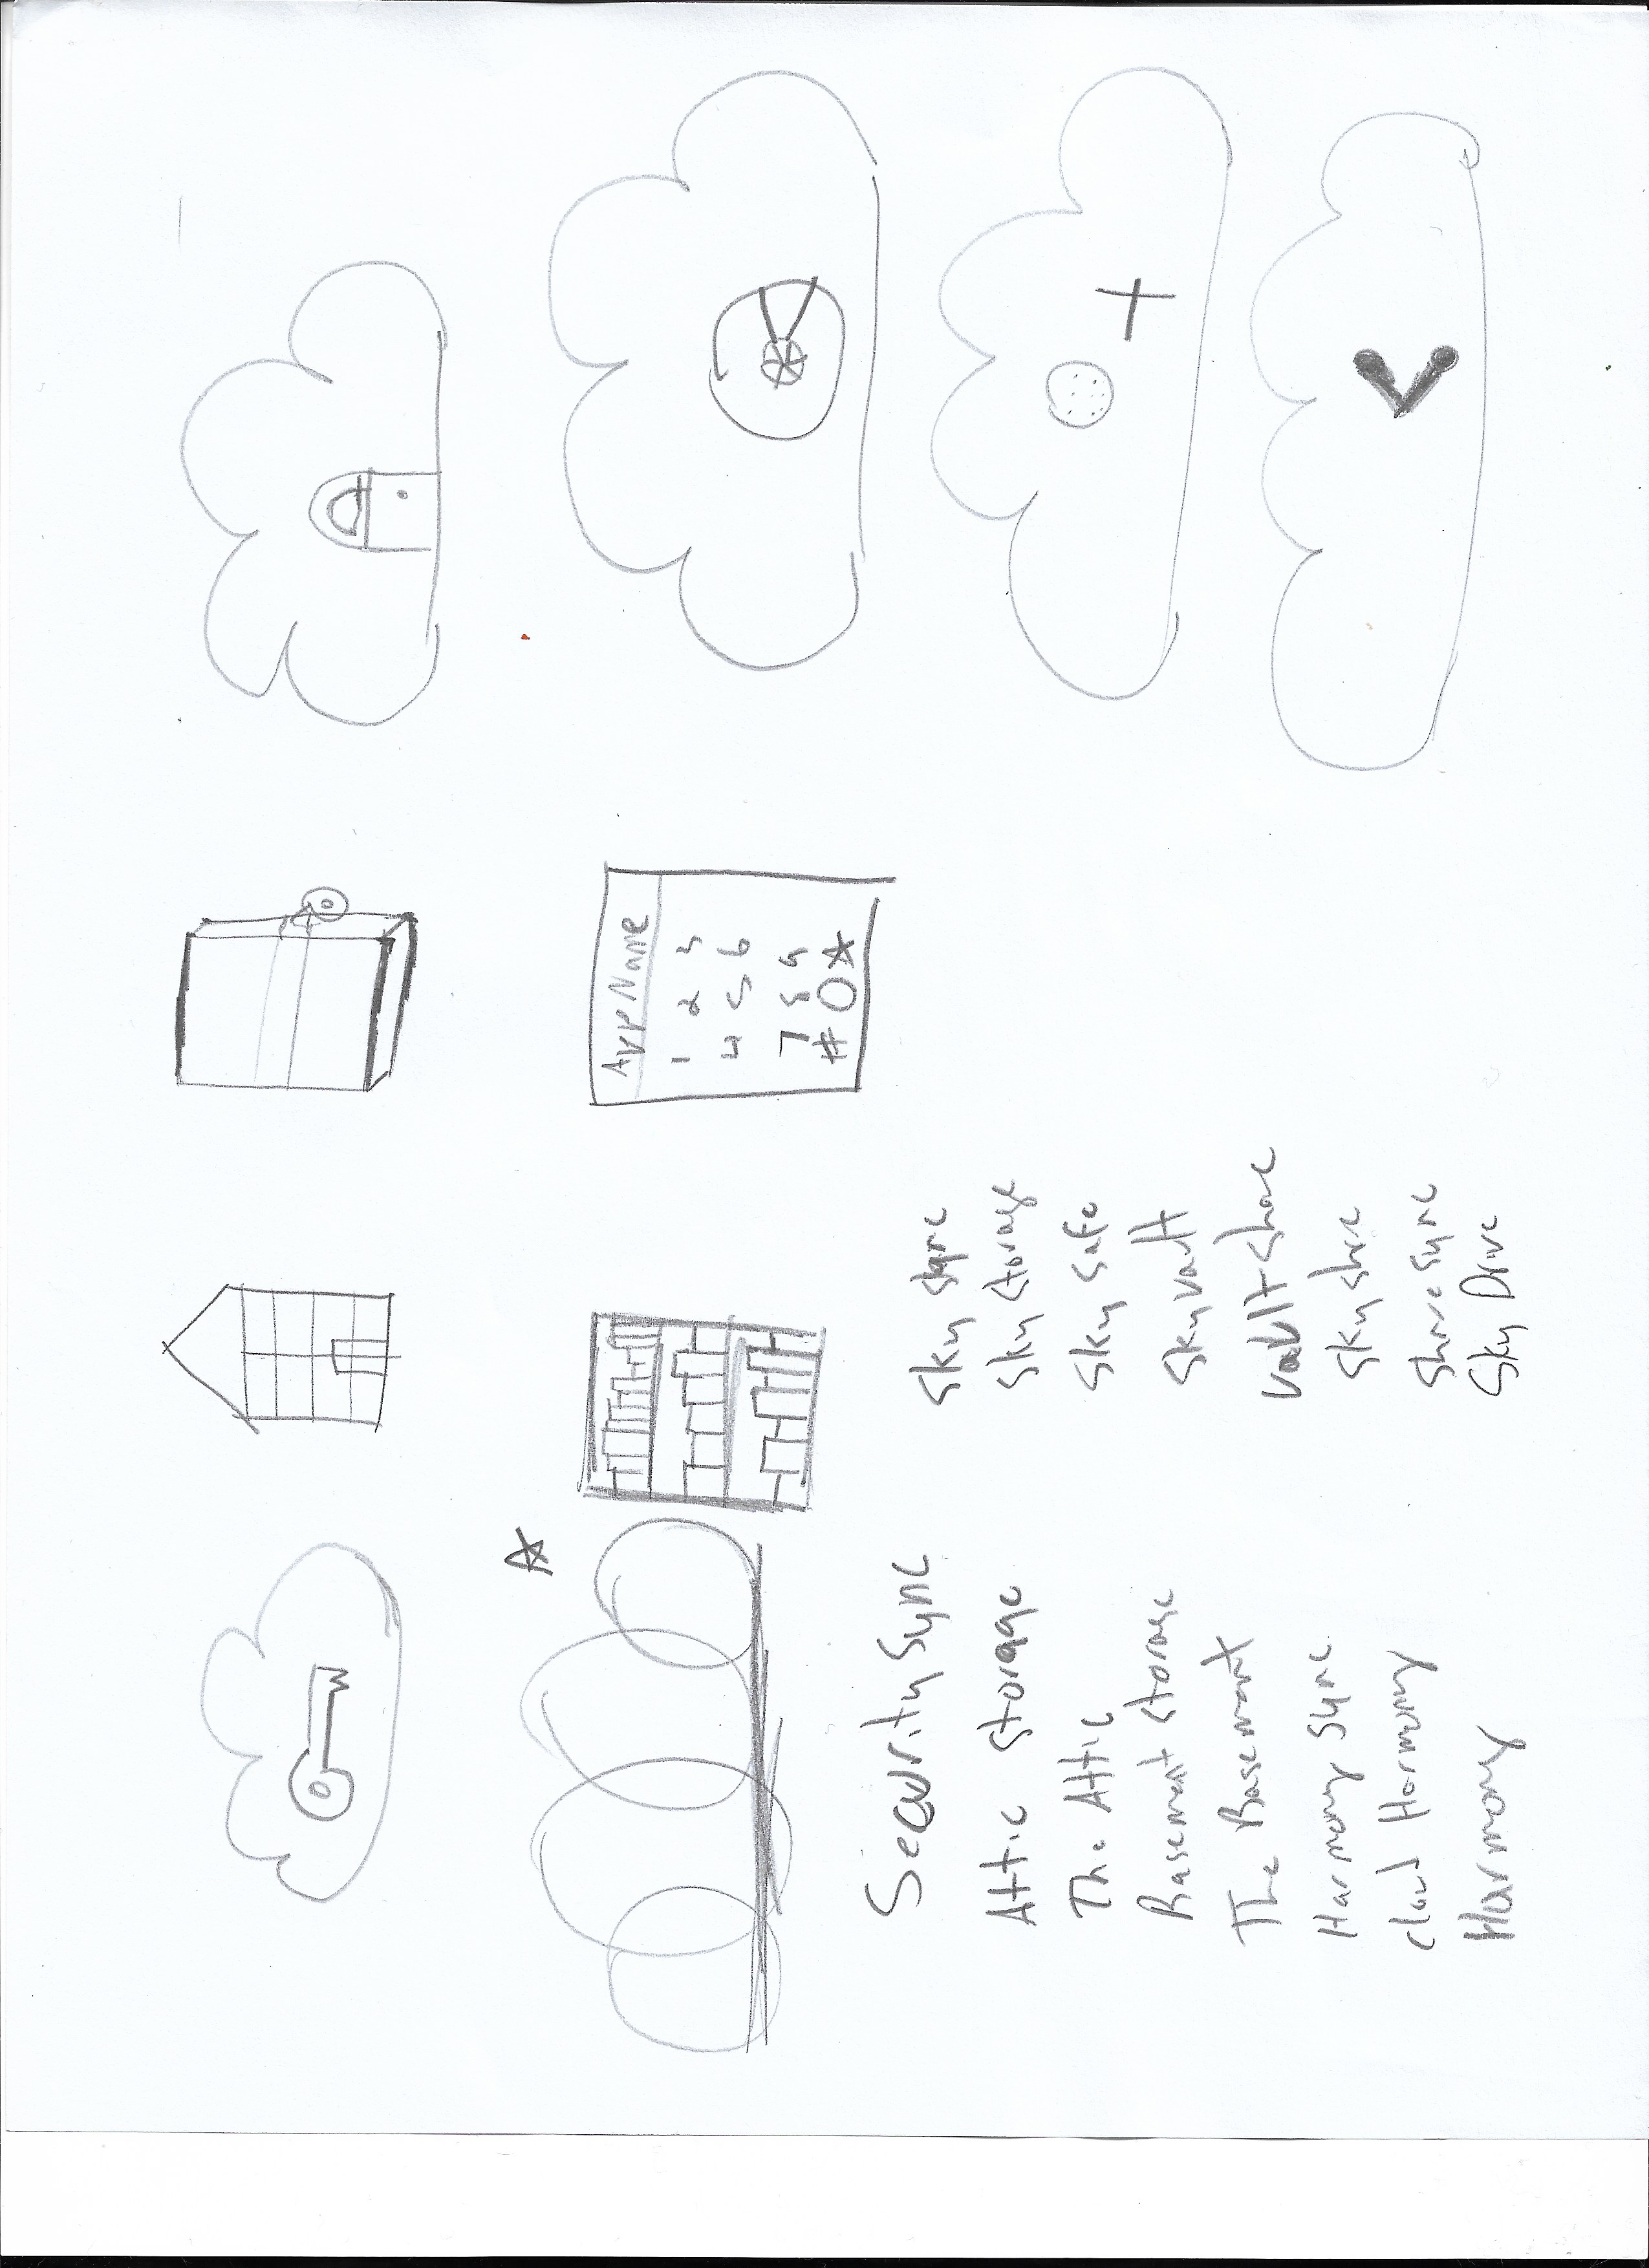 App Name
1 2 3
4 5 6
7 8 9
# 0 *
Security Sync
Attic Storage
The Attic
Basement Storage
The Basement
Harmony Sync
Cloud Harmony
Harmony
Sky Sync
Sky Storage
Sky Safe
Sky Vault
Vault Share
Sky Share
Share Sync
Sky Drive